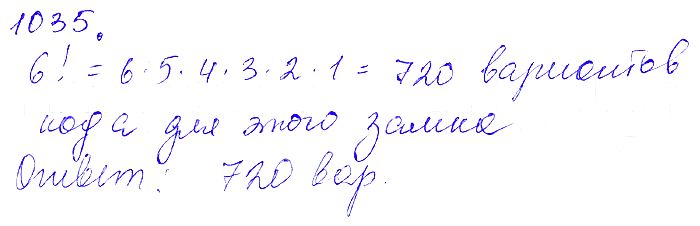 1035.
6! = 6·5·4·3·2·1 = 720 вариантов
кода для этого замка
Ответ: 720 вар.